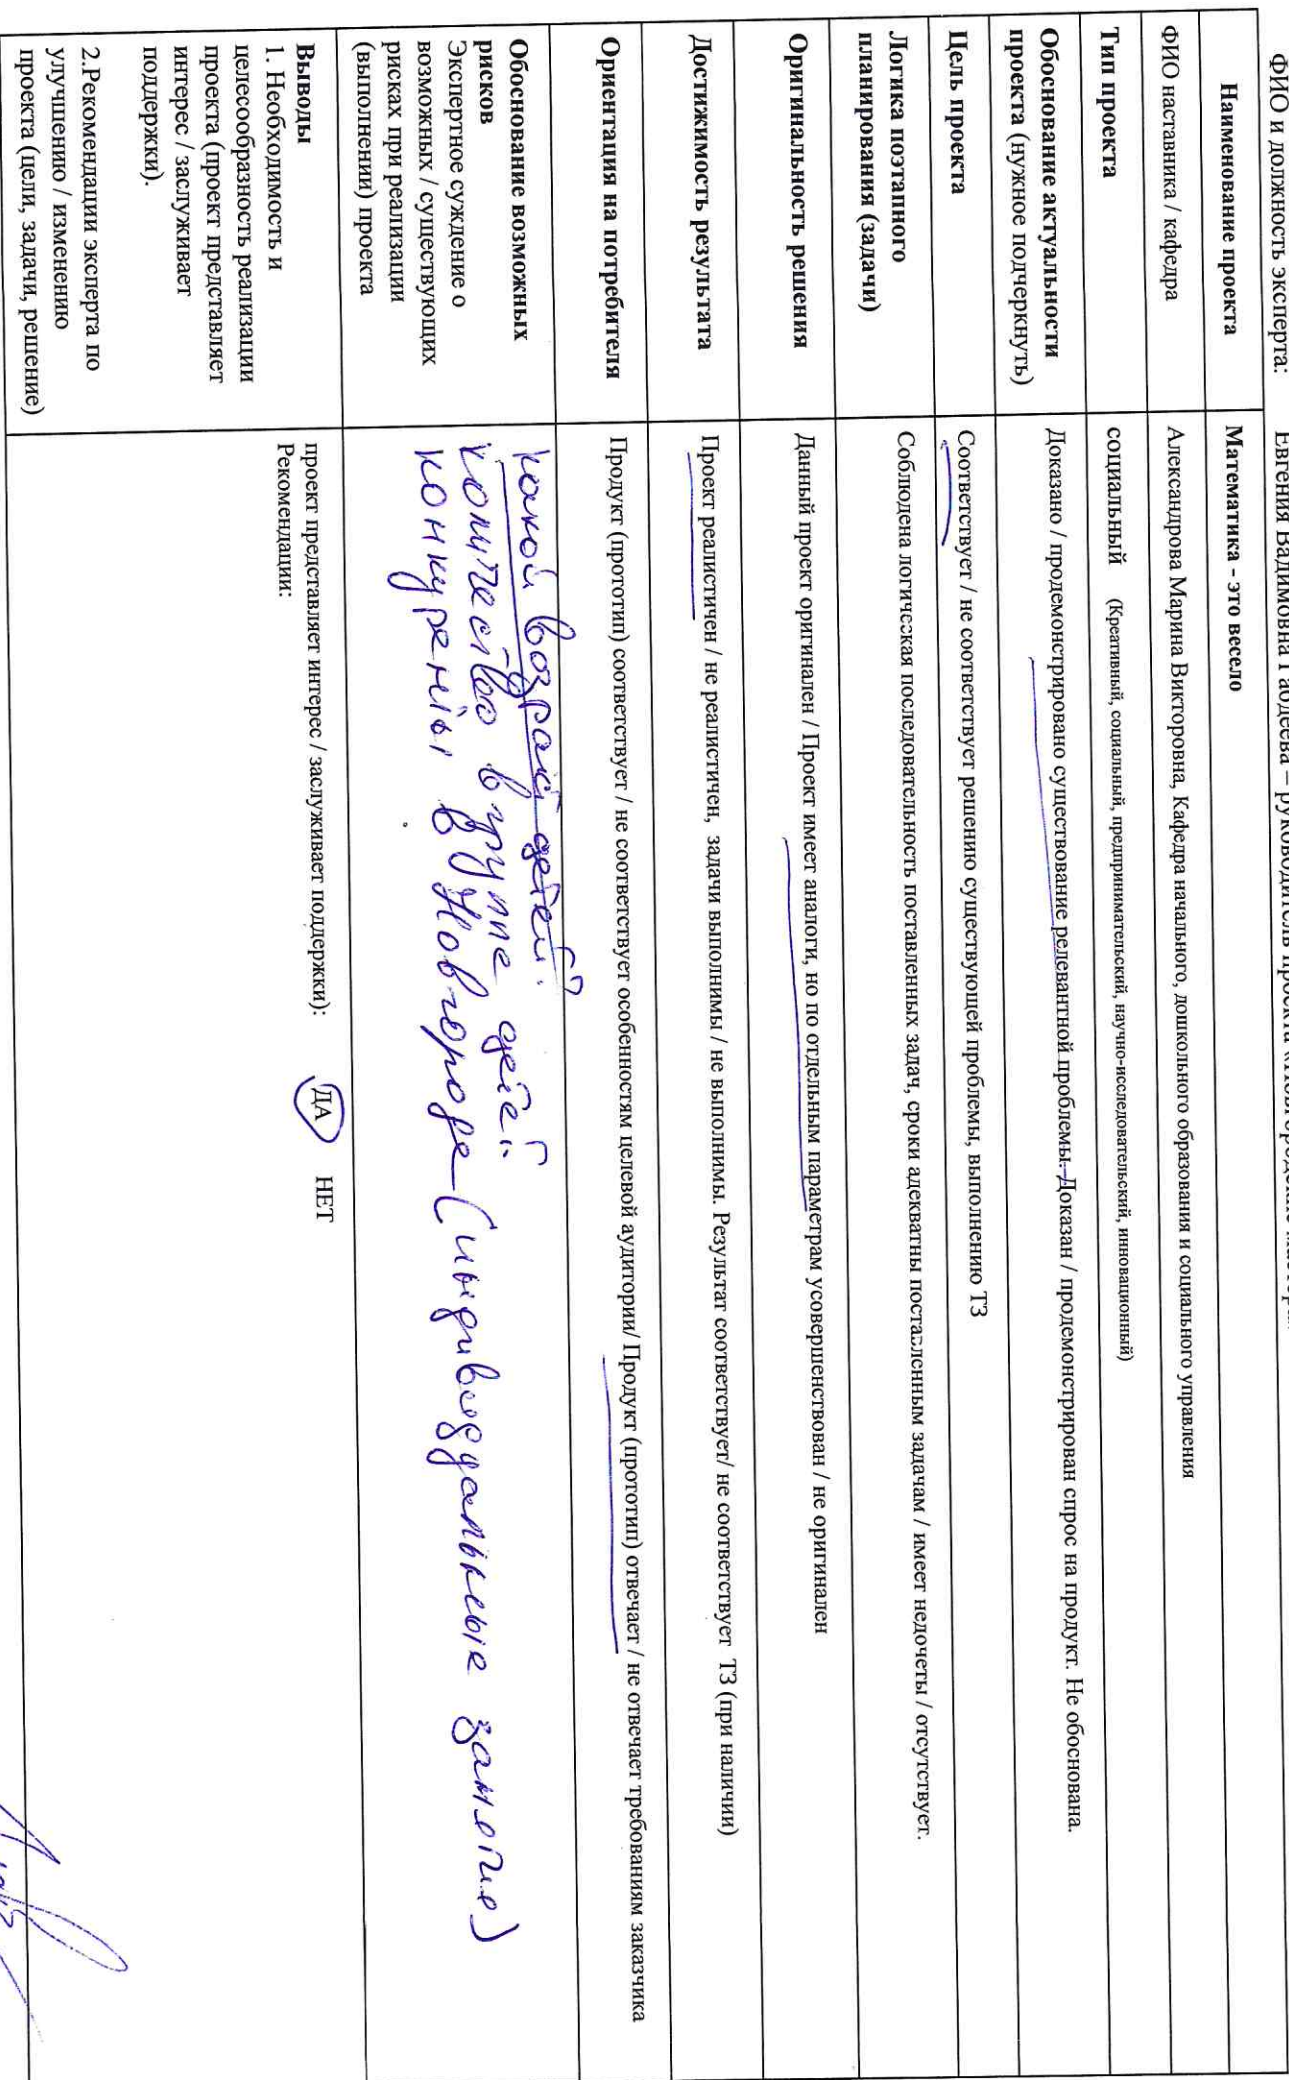 ФИО и должность эксперта: Евгения Вадимовна – руководитель проекта
Наименование проекта Математика – это весело
ФИО наставника / кафедра Александрова Марина Викторовна, Кафедра начального, дошкольного образования и социального управления
Тип проекта социальный (Креативный, социальный, предпринимательский, научно-исследовательский, инновационный)
Обоснование актуальности
проекта (нужное подчеркнуть)
Доказано / продемонстрировано существование релевантной проблемы. Доказан / продемонстрирован спрос на продукт. Не обоснована.
Цель проекта Соответствует / не соответствует решению существующей проблемы, выполнению ТЗ
Логика поэтапного
планирования (задачи)
Соблюдена логическая последовательность поставленных задач, сроки адекватны поставленным задачам / имеет недочеты / отсутствует.
Оригинальность решения Данный проект оригинален / Проект имеет аналоги, но по отдельным параметрам усовершенствован / не оригинален
Достижимость результата Проект реалистичен / не реалистичен, задачи выполнимы / не выполнимы. Результат соответствует/ не соответствует ТЗ (при наличии)
Ориентация на потребителя Продукт (прототип) соответствует / не соответствует особенностям целевой аудитории/ Продукт (прототип) отвечает / не отвечает требованиям заказчика
Обоснование возможных
рисков
Экспертное суждение о
возможных / существующих
рисках при реализации
(выполнении) проекта
какой возраст детей?
количество в группе детей
конкуренты в Новгороде (индивидуальные занятие)
Выводы
1. Необходимость и
целесообразность реализации
проекта (проект представляет
интерес / заслуживает
поддержки).
проект представляет интерес / заслуживает поддержки): ДА НЕТ
Рекомендации:
2.Рекомендации эксперта по
улучшению / изменению
проекта (цели, задачи, решение)